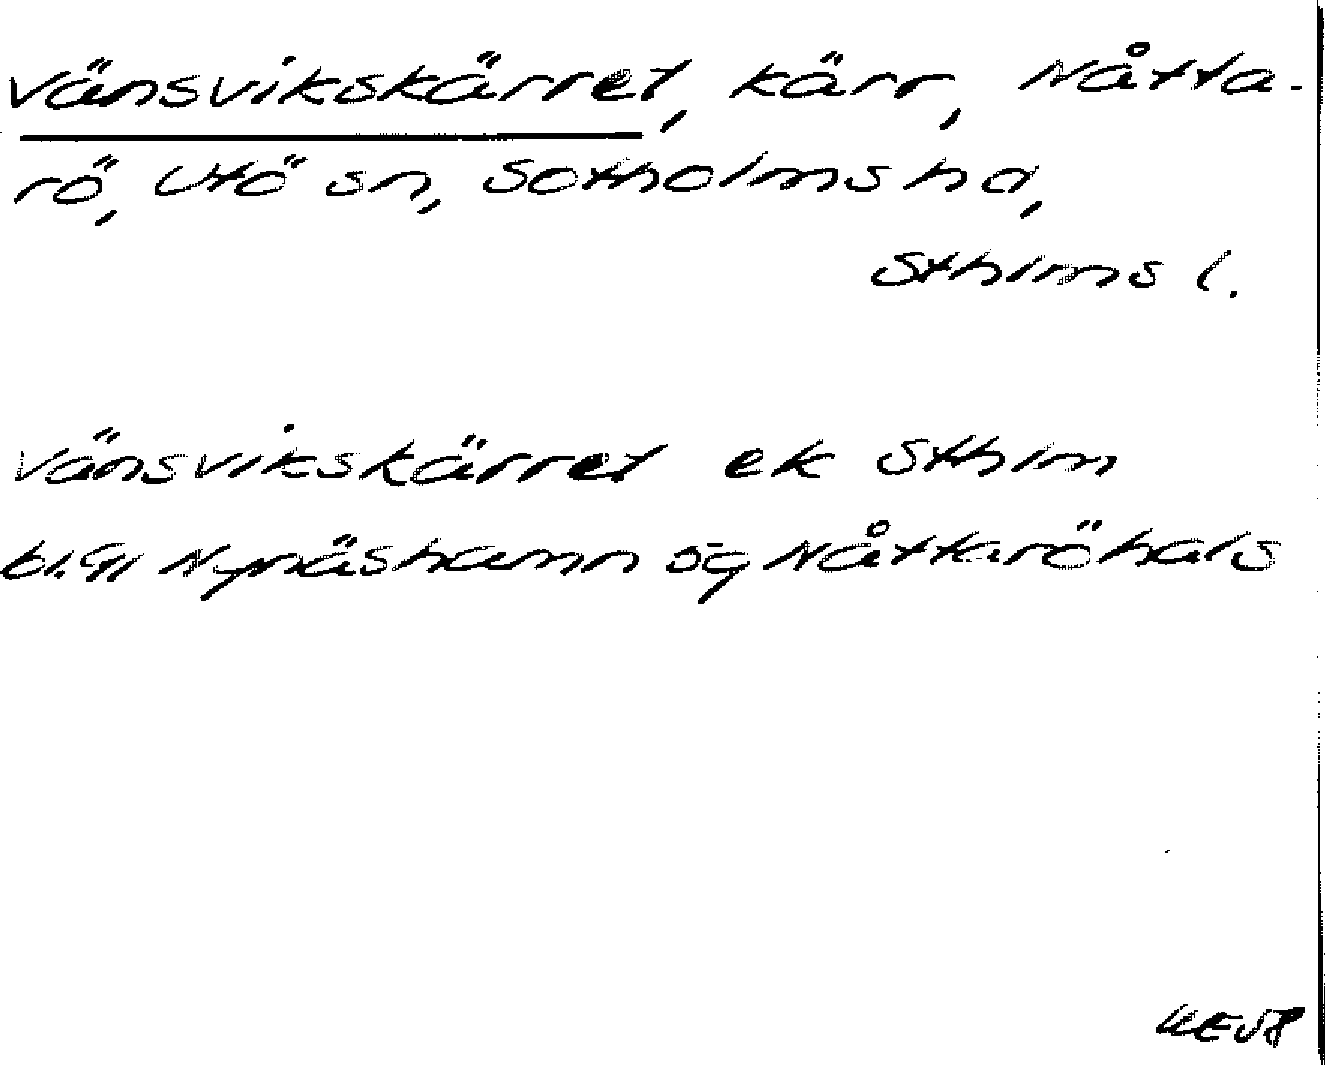 Vänsvikskärret, kärr, Nåtta-
rö, Utö sn, Sotholms hd,
Sthlms l.
Vänsvikskärret ek Sthlm
bl. 91 Nynäshamn ög Nåttaröhals